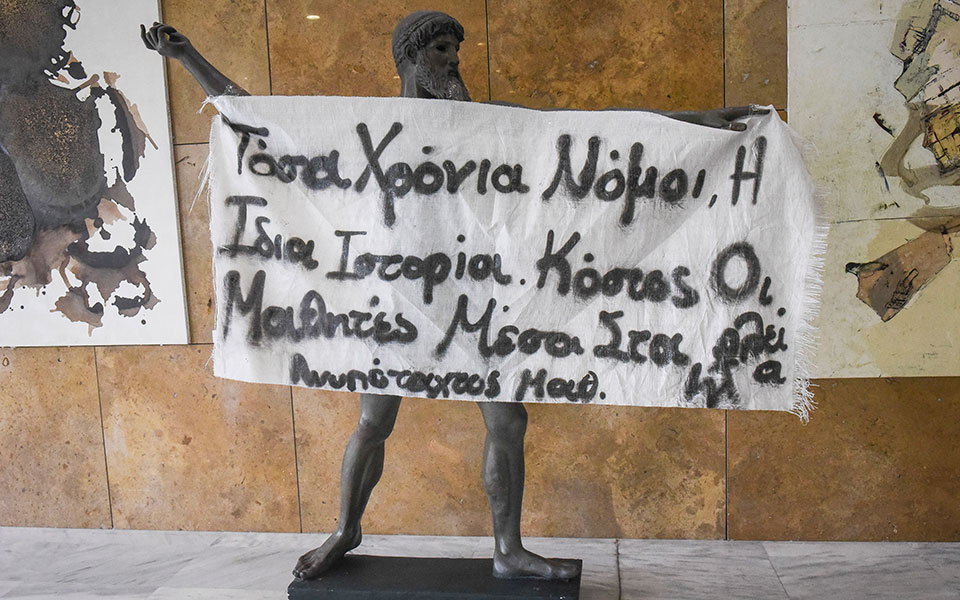 Τόσα Χρόνια Νόμοι, Η
Ίδια Ιστορία. Κόστος Οι
Μαθητές Μέσα Στα
Ανυπόταχτος Μαθ.